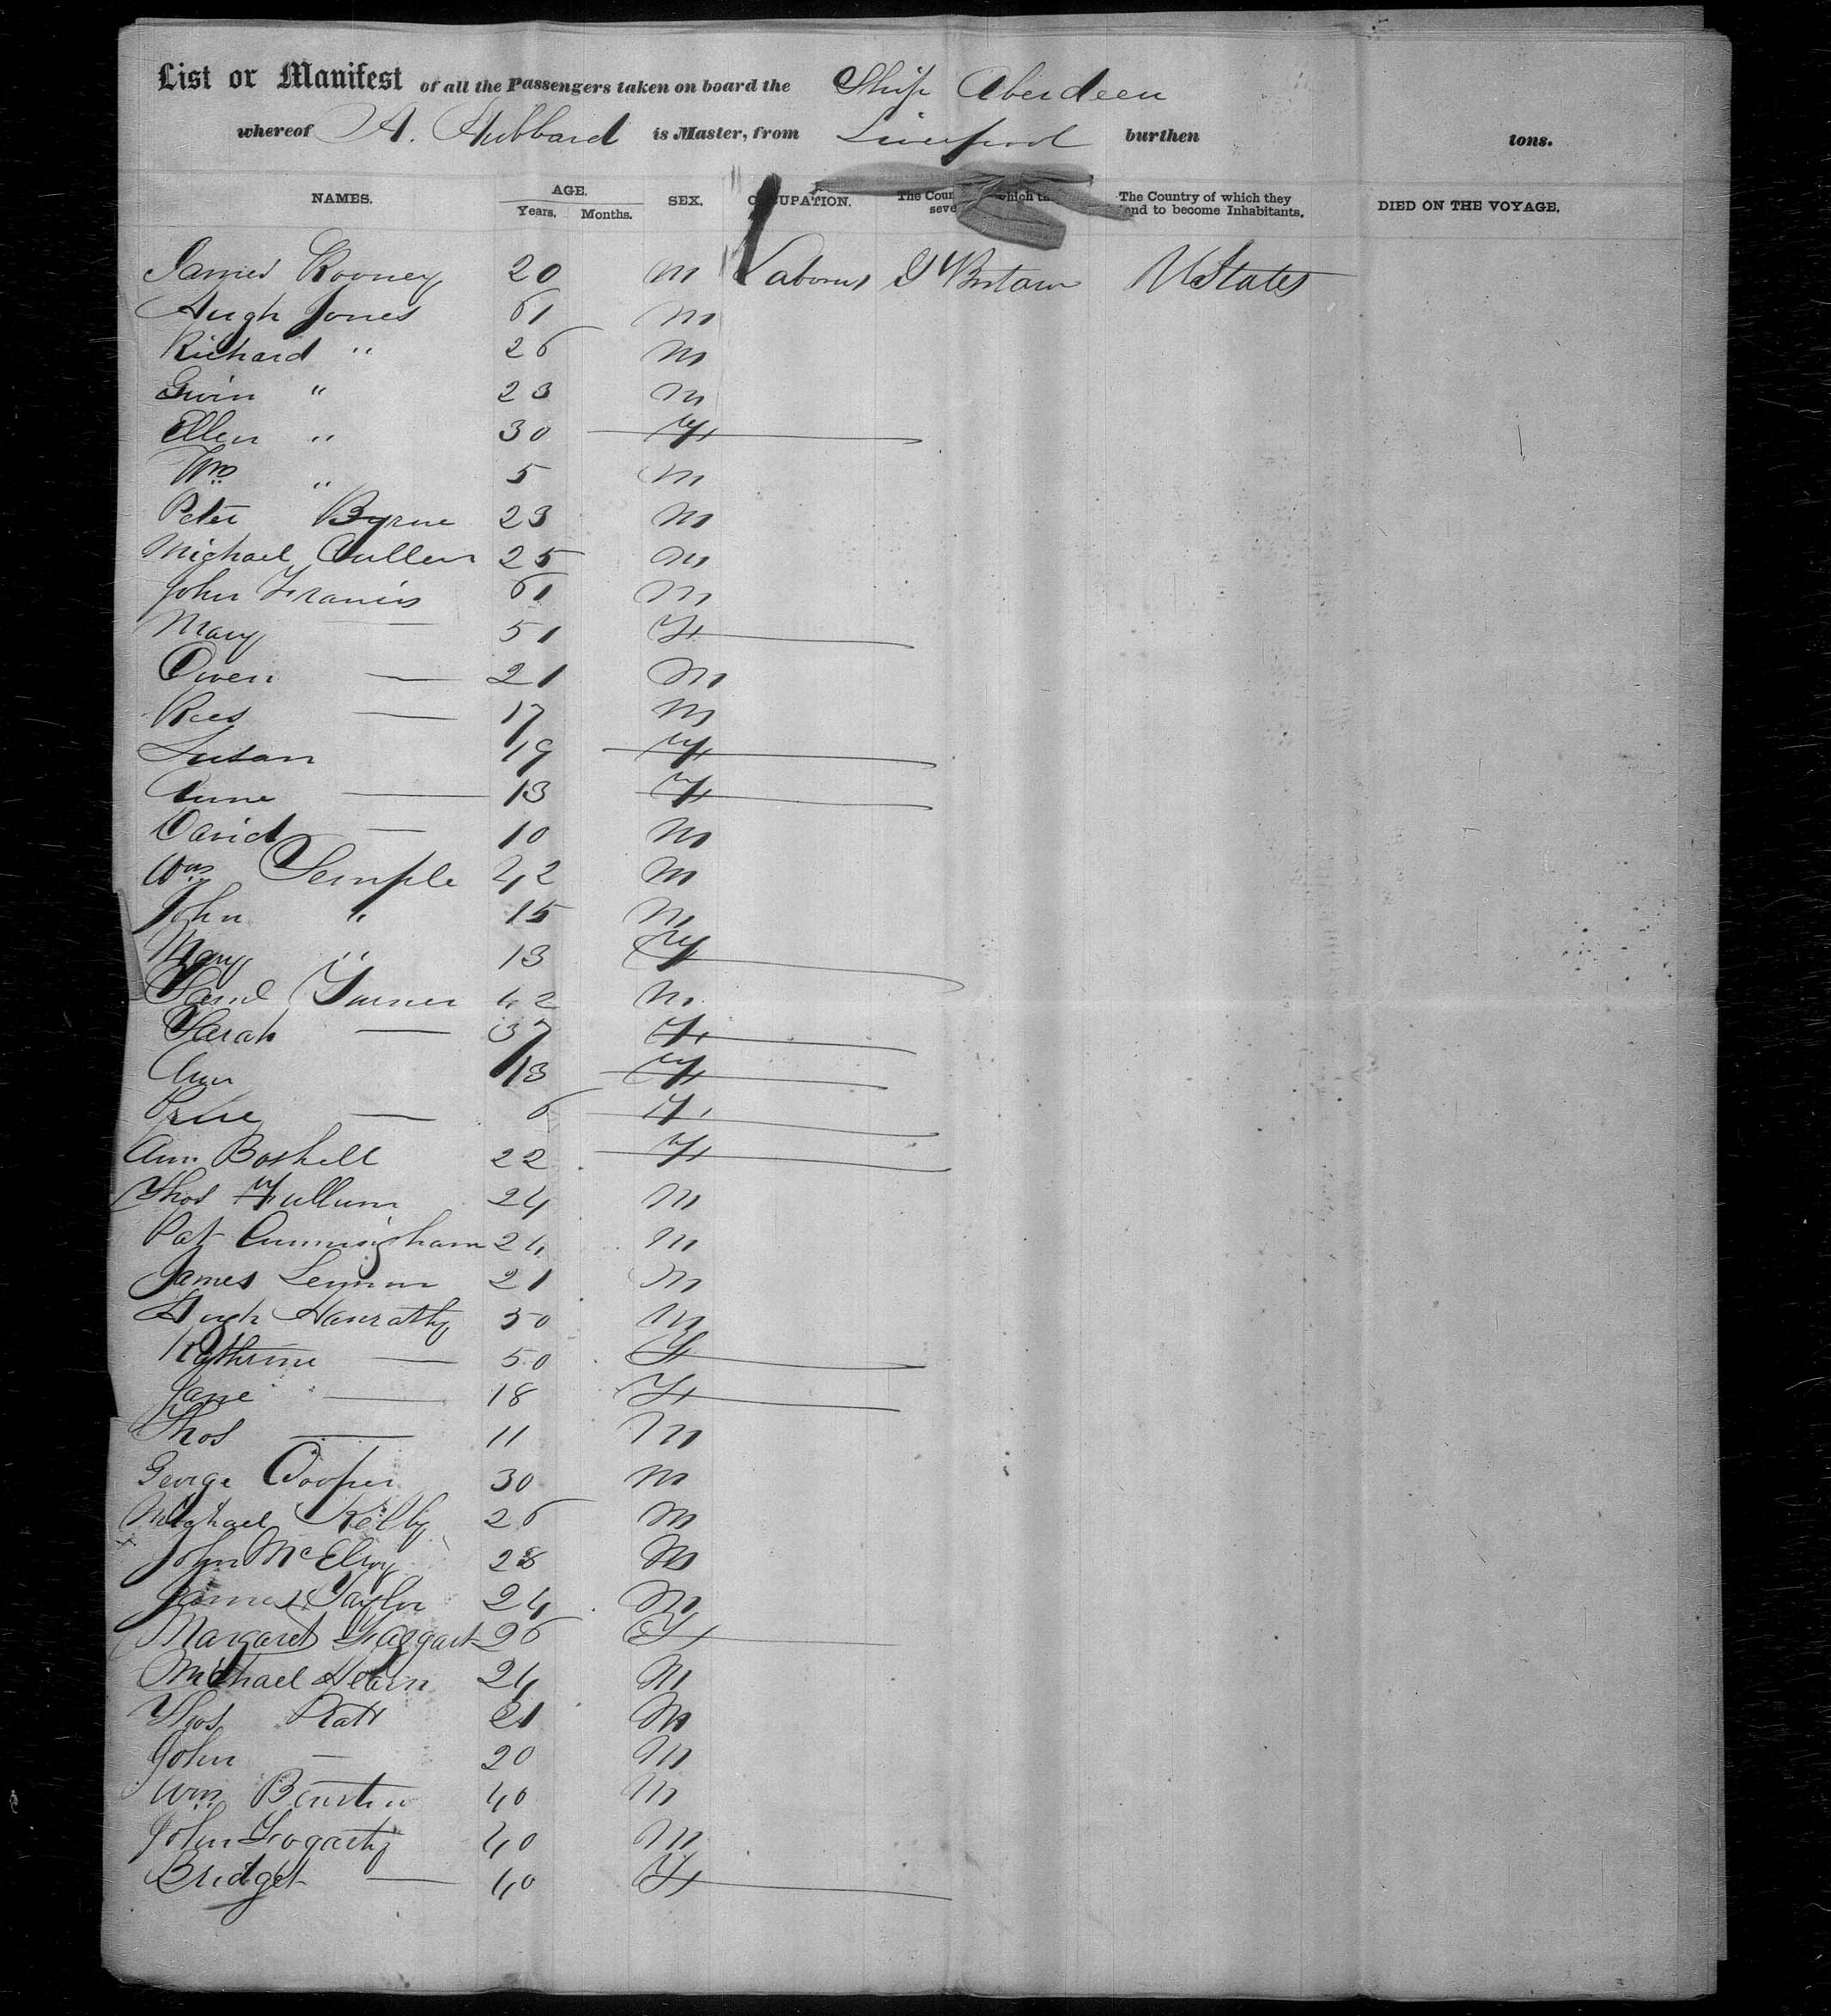 List or Manifest of all the Passengers taken on board the Ship Aberdeen
whereof A. Hubbard is Master, from Liverpool burthen tons.
NAMES. AGE. SEX. OCCUPATION. The Country of which they
Years. Months. DIED ON THE VOYAGE.
to become Inhabitants.
James Rooney 20 M Laborers G Britain U States
Hugh Jones 61 M
Richard " 26 M
Gwin " 23 M
Ellen " 30 F
Wm " 5 M
Peter Byrne 23 M
Michael Cullen 25 M
John Francis 61 M
Mary — 51 F
Owen — 21 M
Rees — 17 M
Susan 19 F
Anne — 13 F
David — 10 M
Wm Semple 42 M
John " 15 M
Mary " 13 F
Saml Turner 42 M
Sarah — 37 F
Ann 13 F
Prue — 6 F
Ann Boshell 22 F
Thos Fullum 24 M
Pat Cunningham 24 M
James Lennon 21 M
Hugh Hanratty 50 M
Kathrine — 50 F
Jane — 18 F
Thos — 11 M
George Cooper 30 M
Michael Kelly 26 M
John McElroy 28 M
James Taylor 24 M
Margaret 26 F
Michael Hearn 24 M
Thos Ratt 21 M
John — 20 M
Wm 40 M
John Gogarty 40 M
Bridget — 40 F